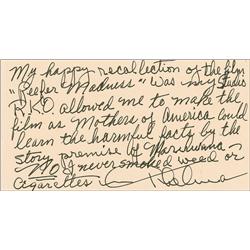 My happy recollection of the film
"Reefer Madness" was my studio
R.K.O. allowed me to make the
film as Mothers of America could
learn the harmful facts by the
story premise of Marihuana
NO I never smoked weed or
Cigarettes